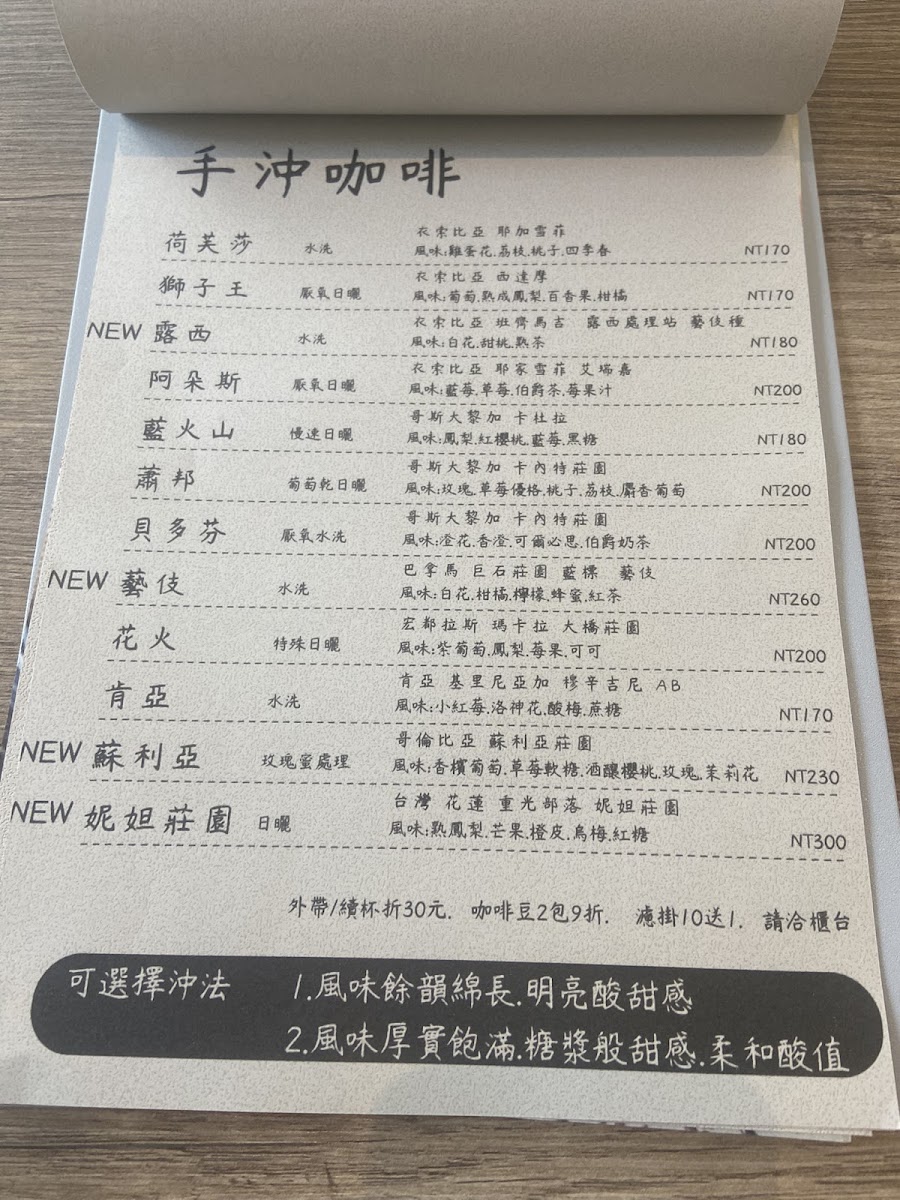 手沖咖啡
衣索比亞 耶加雪菲
荷芙莎 水洗 風味:雞蛋花.荔枝.桃子.四季春 NT170
衣索比亞 西達摩
獅子王 厭氧日曬 風味:葡萄.熟成鳳梨.百香果.柑橘 NT170
衣索比亞 班齊馬吉 露西處理站 藝伎種
NEW 露西 水洗 風味:白花.甜桃.熟茶 NT180
衣索比亞 耶家雪菲 艾瑞嘉
阿朵斯 厭氧日曬 風味:藍莓.草莓.伯爵茶.莓果汁 NT200
哥斯大黎加 卡杜拉
藍火山 慢速日曬 風味:鳳梨.紅櫻桃.藍莓.黑糖 NT180
哥斯大黎加 卡內特莊園
蕭邦 葡萄乾日曬 風味:玫瑰.草莓優格.桃子.荔枝.麝香葡萄 NT200
哥斯大黎加 卡內特莊園
貝多芬 厭氧水洗 風味:澄花.香澄.可爾必思.伯爵奶茶 NT200
巴拿馬 巨石莊園 藍標 藝伎
NEW 藝伎 水洗 風味:白花.柑橘.檸檬.蜂蜜.紅茶 NT260
宏都拉斯 瑪卡拉 大橋莊園
花火 特殊日曬 風味:紫葡萄.鳳梨.莓果.可可 NT200
肯亞 基里尼亞加 穆辛吉尼 AB
肯亞 水洗 風味:小紅莓.洛神花.酸梅.蔗糖 NT170
哥倫比亞 蘇利亞莊園
NEW 蘇利亞 玫瑰蜜處理 風味:香檳葡萄.草莓軟糖.酒釀櫻桃.玫瑰.茉莉花 NT230
台灣 花蓮 重光部落 妮妲莊園
NEW 妮妲莊園 日曬 風味:熟鳳梨.芒果.橙皮.烏梅.紅糖 NT300
外帶/續杯折30元. 咖啡豆2包9折. 濾掛10送1. 請洽櫃台
可選擇沖法 1.風味餘韻綿長.明亮酸甜感
2.風味厚實飽滿.糖漿般甜感.柔和酸值